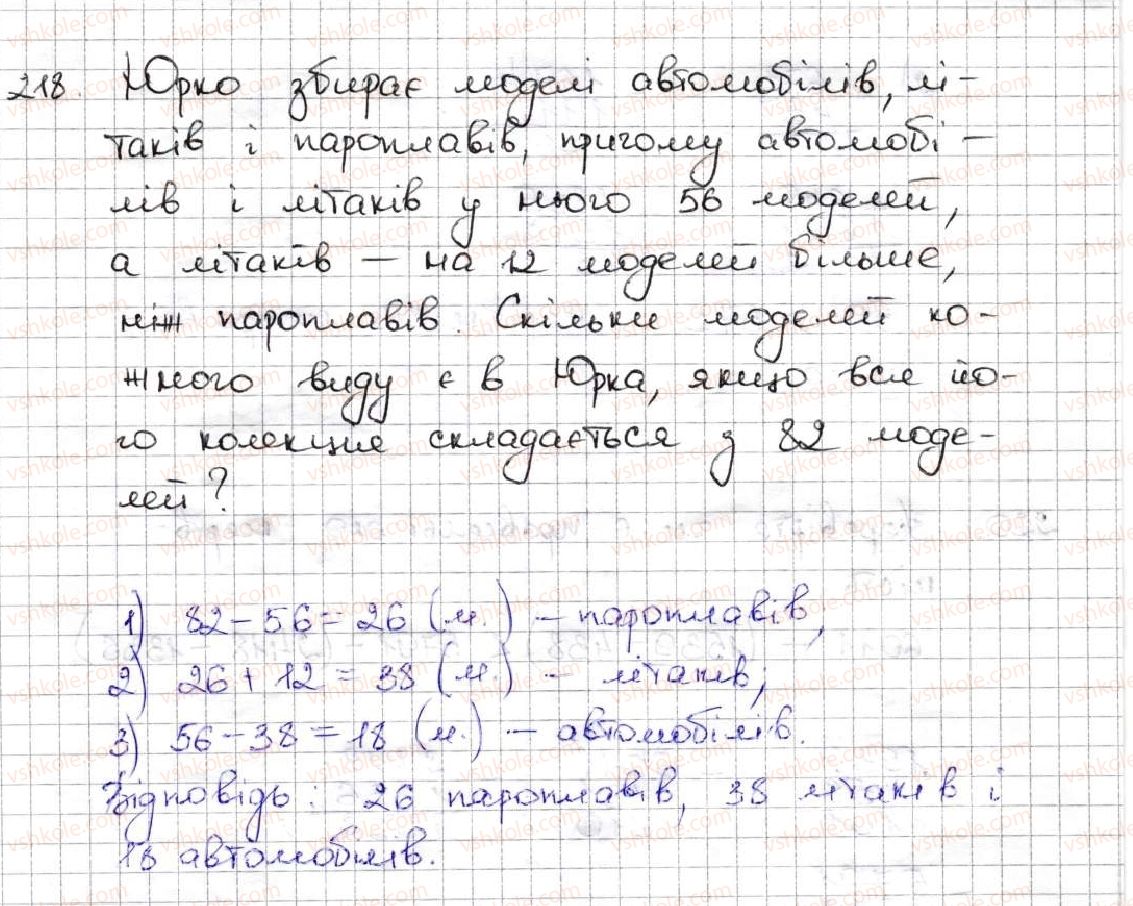 218. Юрко збирає моделі автомобілів, лі-
таків і пароплавів, причому автомобі-
лів і літаків у нього 56 моделей,
а літаків – на 12 моделей більше,
ніж пароплавів. Скільки моделей ко-
жного виду є в Юрка, якщо вся йо-
го колекція складається з 82 моде-
лей?
1) 82 – 56 = 26 (м.) – пароплавів,
2) 26 + 12 = 38 (м.) – літаків;
3) 56 – 38 = 18 (м.) – автомобілів.
Відповідь: 26 пароплавів, 38 літаків і
18 автомобілів.